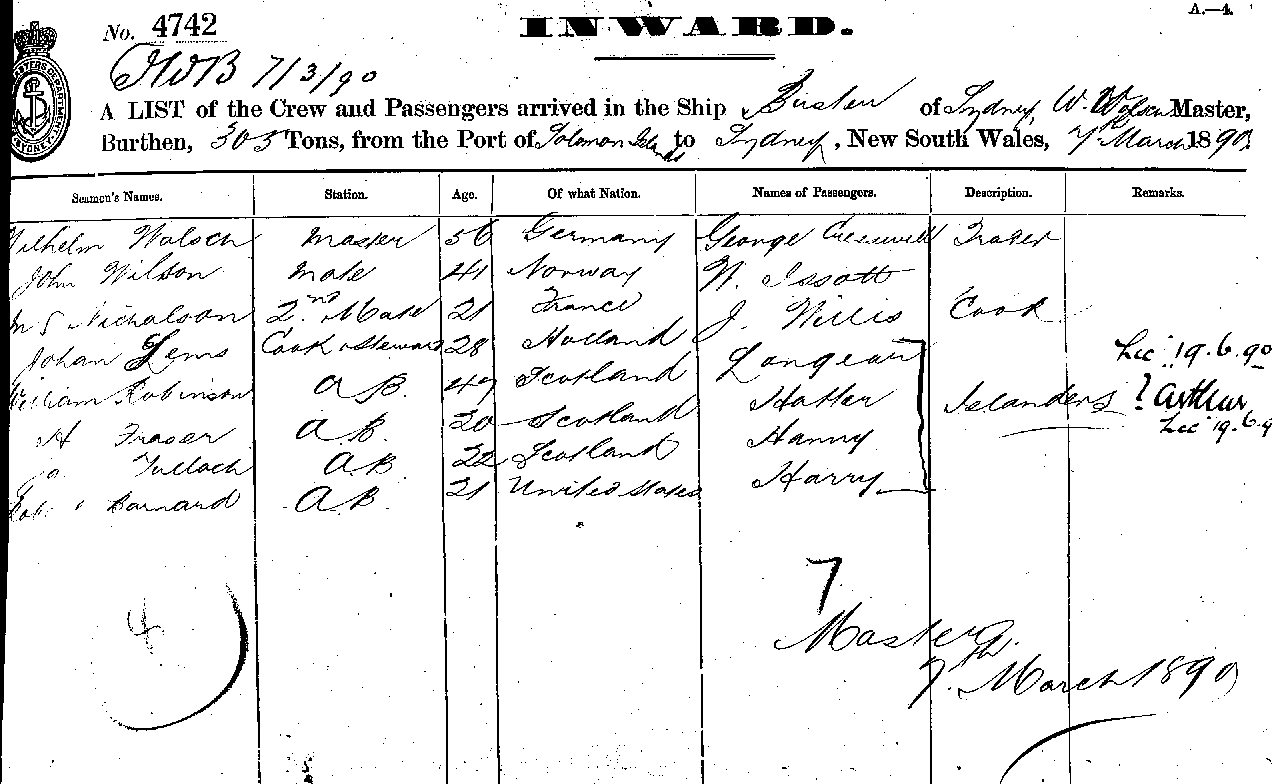 No. 4742
INWARD.
A.—4.
7/3/90
A LIST of the Crew and Passengers arrived in the Ship Buster of Sydney, W. Master,
Burthen, 303 Tons, from the Port of Solomon Islands to Sydney, New South Wales, 7 March 1890
Seamen's Names. Station. Age. Of what Nation. Names of Passengers. Description. Remarks.
Wilhelm Wolsch Master 56 Germany George Cresswell Trader
John Wilson Mate 41 Norway W. Issott
Nicholson 2nd Mate 21 France J. Willis Cook
Johan Lems Cook & Steward 28 Holland Longear 19.6.90
William Robinson AB. 47 Scotland Hatler Islanders ? Arthur
Fraser AB. 20 Scotland Hanny 19.6.9
Tulloch AB 22 Scotland Harry
Barnard AB. 21 United States
4
7
Master
7th March 1890